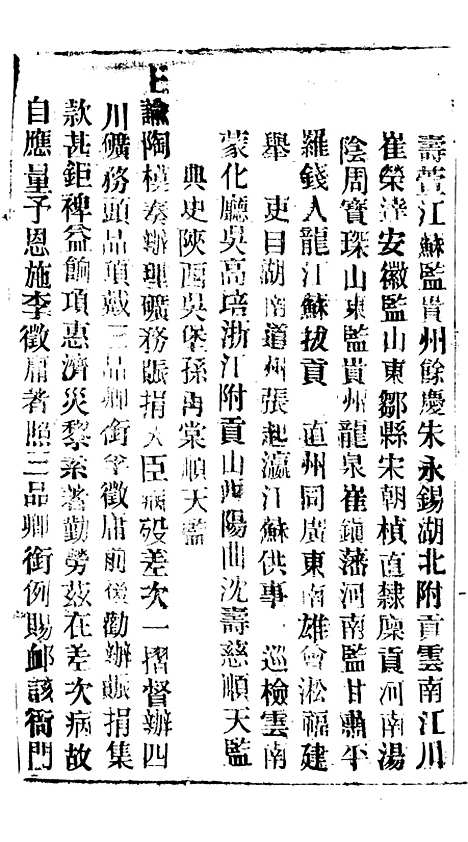 壽萱江蘇監貴州餘慶朱永錫湖北附貢雲南江川
崔榮達安徽監山東鄒縣宋朝楨直隸廩貢河南湯
陰周寶琛山東監貴州龍泉崔鎮藩河南監甘肅平
羅錢人龍江蘇拔貢 直州同廣東南雄曾淞福建
舉 吏目湖南道州張起瀛江蘇供事 巡檢雲南
蒙化廳吳高培浙江附貢山西陽曲沈壽慈順天監
典史陝西吳堡孫棠順天監
上諭陶模奏辦理礦務賑捐大臣病歿差次一摺督辦四
川礦務頭品頂戴三品卿銜李徵庸前後勸辦賑捐集
款甚鉅裨益餉項惠濟災黎素著勤勞茲在差次病故
自應量予恩施李徵庸著照三品卿銜例賜卹該衙門